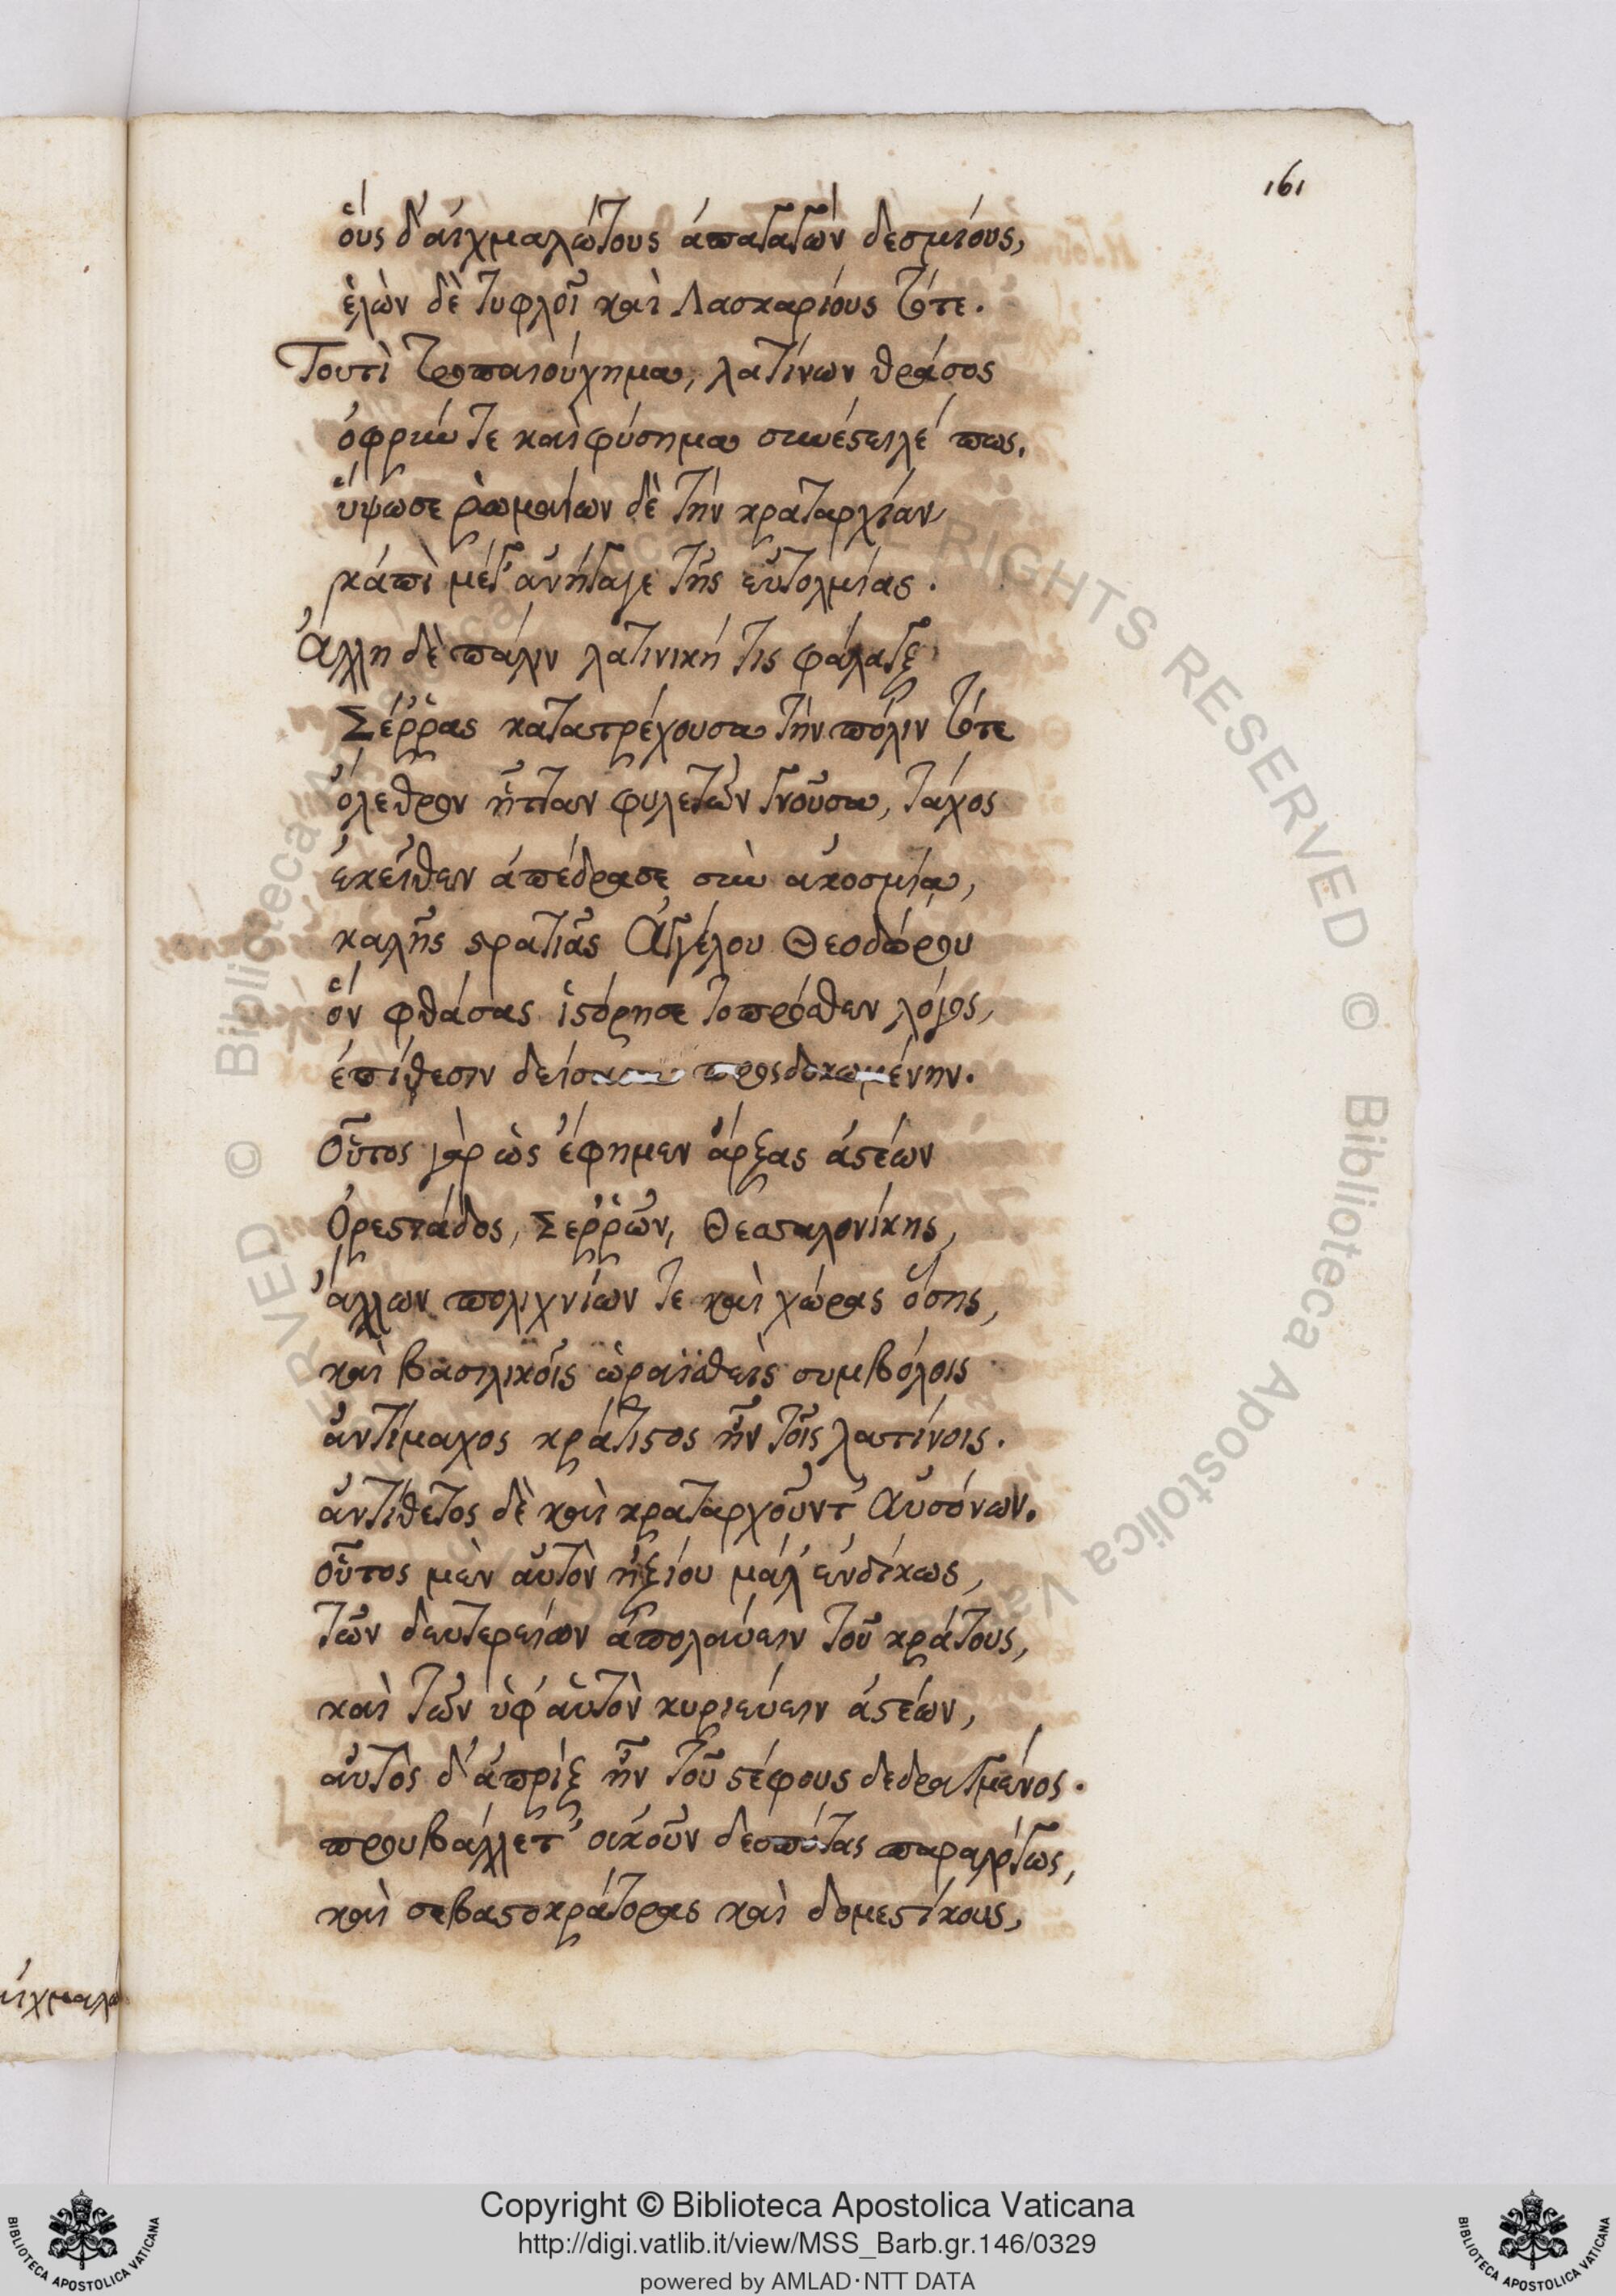 161
οὓς δ' αἰχμαλώτους ἀπαγαγὼν δεσμίους,
ἑλὼν δὲ τυφλοῖ καὶ Λασκαρίους τότε.
Τουτὶ τροπαιούχημα, λατίνων θράσος
ὀφρύν τε καὶ φύσημα συνέστειλέ πως.
ὕψωσε ῥωμαίων δὲ τὴν κραταρχίαν
κἀπὶ μέγ' ἀνήγαγε τῆς εὐτολμίας.
Ἄλλη δὲ πάλιν λατινική τις φάλαγξ
Σέῤῥας κατατρέχουσα τὴν πόλιν τότε
ὄλεθρον ἧτταν φυλετῶν γνοῦσα, τάχος
ἐκεῖθεν ἀπέδρασε σὺν ἀκοσμία,
καλῆς στρατιᾶς Ἀγγέλου Θεοδώρου
ὃν φθάσας ἱστόρησε τοπρόσθεν λόγος,
ἐπίθεσιν δείσασα προςδοκωμένην.
Οὗτος γὰρ ὡς ἔφημεν ἄρξας ἀστέων
Ὀρεστάδος, Σεῤῥῶν, Θεσσαλονίκης,
ἄλλων πολιχνίων τε καὶ χώρας ὅσης,
καὶ βασιλικοῖς ὡραϊσθεὶς συμβόλοις
ἀντίμαχος κράτιστος ἦν τοῖς λατίνοις.
ἀντίθετος δὲ καὶ κραταρχοῦντ' Αὐσόνων.
οὗτος μὲν αὐτὸν ἠξίου μάλ' ἐνδίκως,
τῶν δευτερείων ἀπολαύειν τοῦ κράτους,
καὶ τῶν ὑφ' αὑτὸν κυριεύειν ἀστέων,
αὐτὸς δ' ἀπρὶξ ἦν τοῦ στέφους δεδραγμένος.
προυβάλλετ' οὐκοῦν δεσπότας παραλόγως,
καὶ σεβαστοκράτορας καὶ δομεστίκους,
Copyright © Biblioteca Apostolica Vaticana
http://digi.vatlib.it/view/MSS_Barb.gr.146/0329
powered by AMLAD·NTT DATA